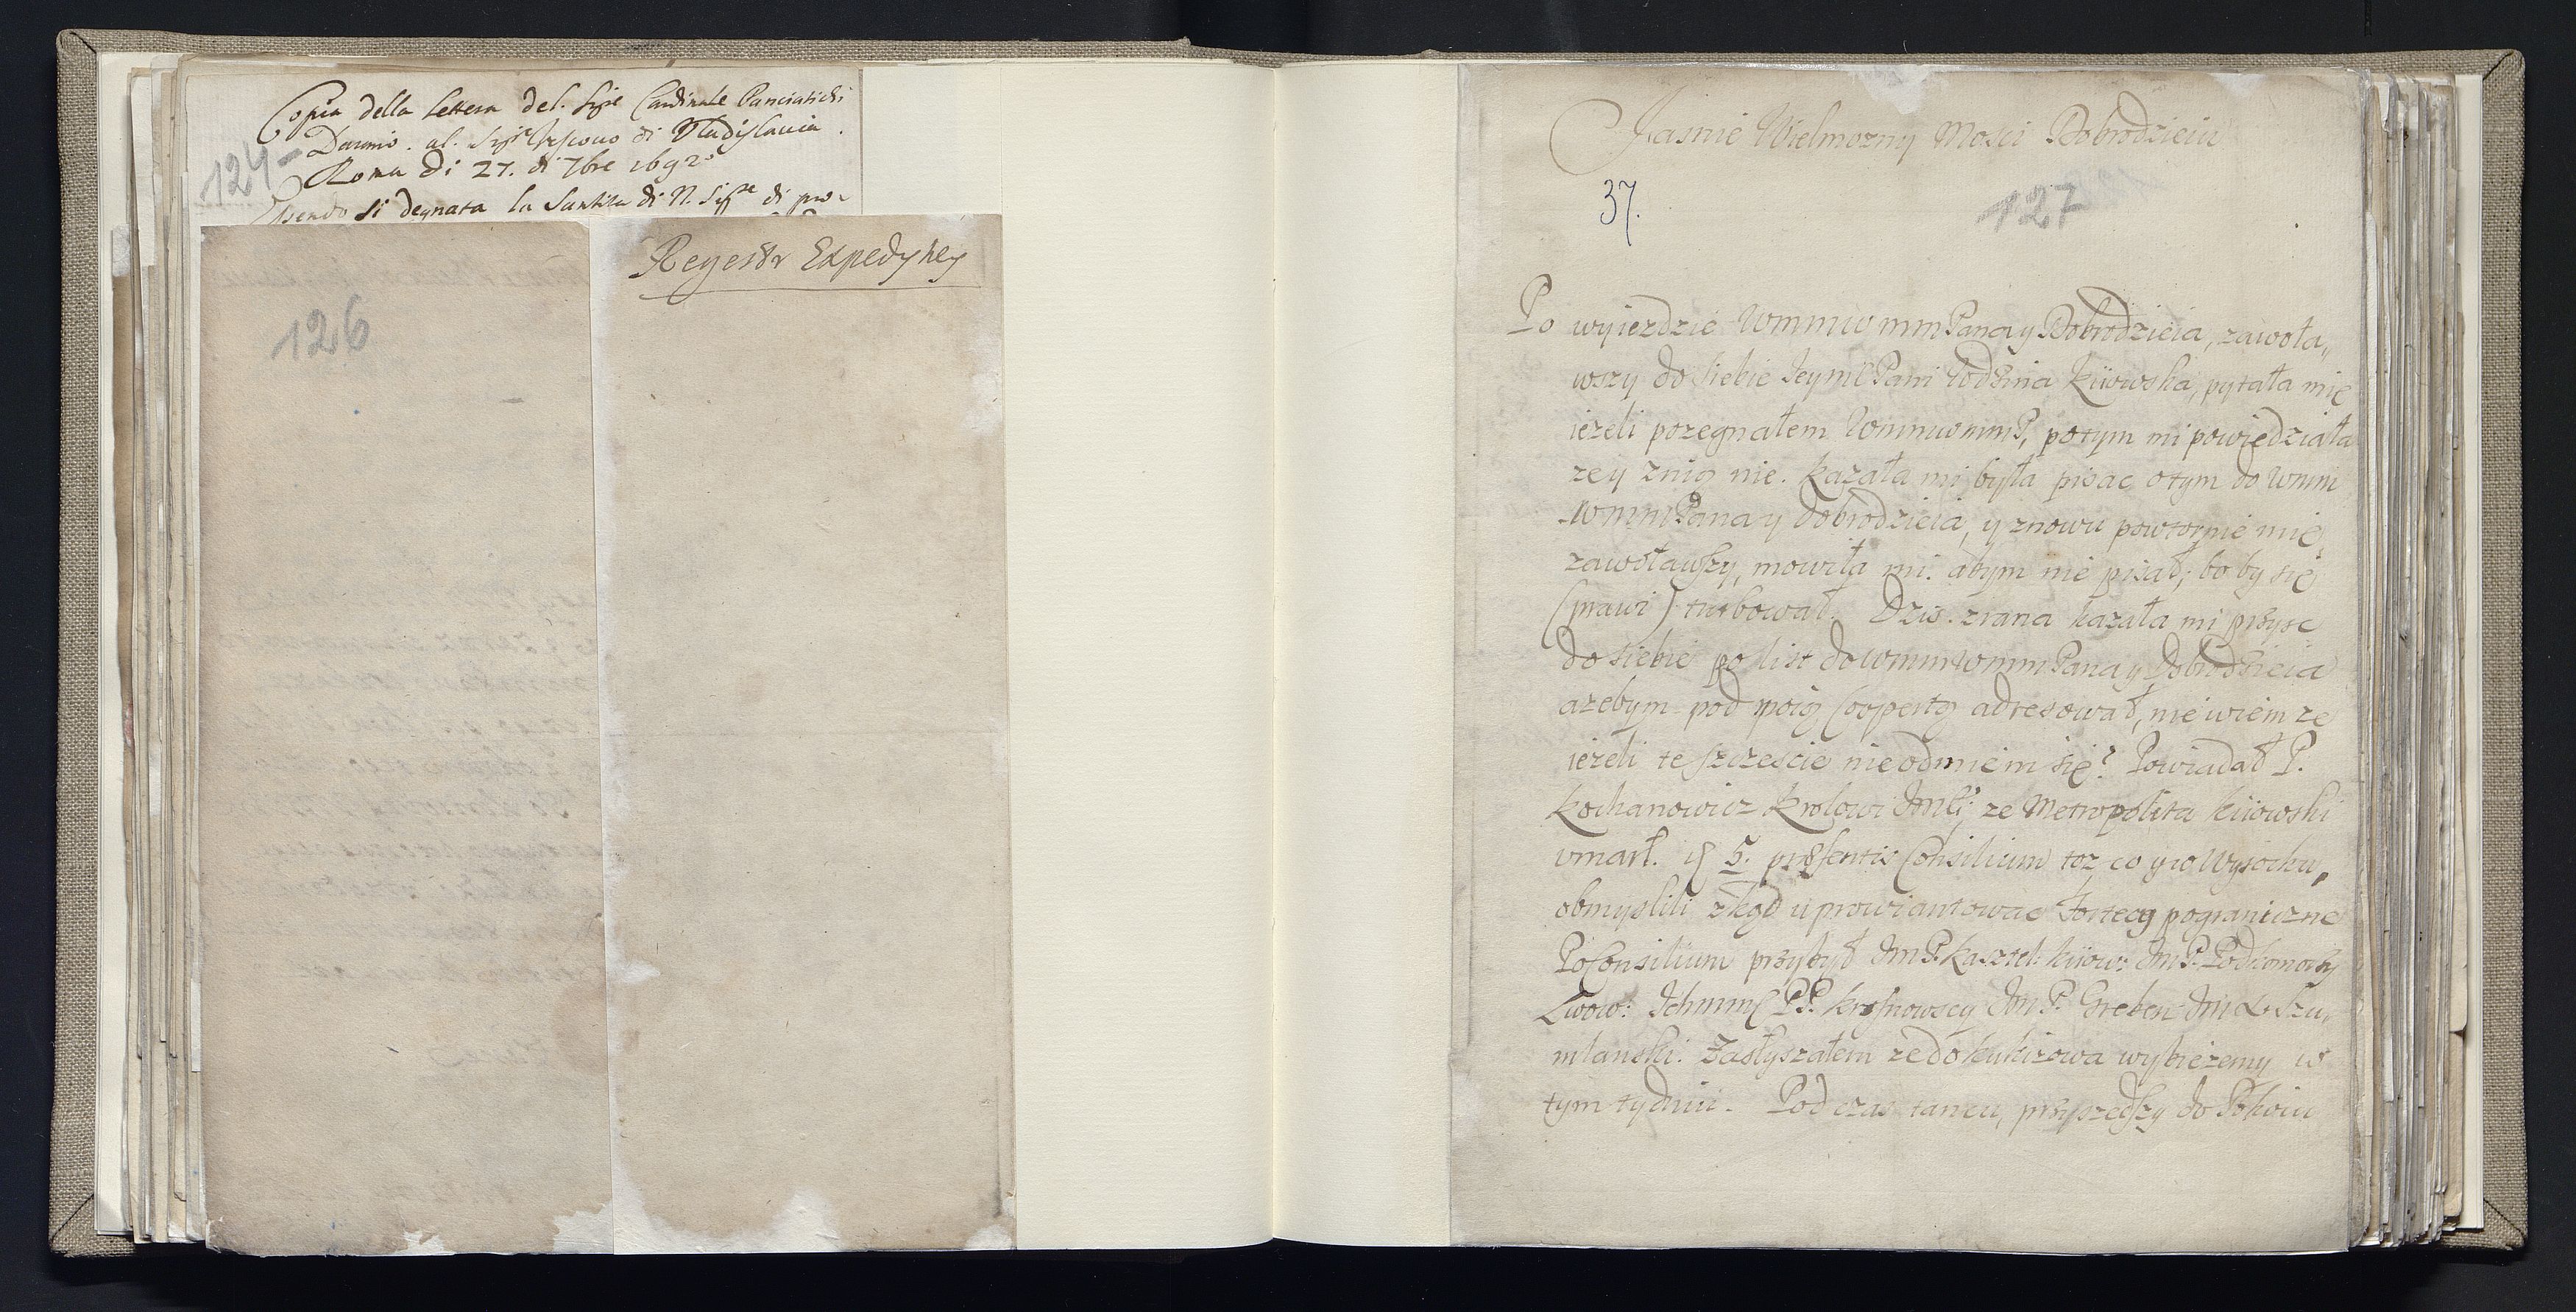 Copia della lettera del. Sigre Cardinale Panciatichi
al. Sigre Vescovo di Vladislavia.
124
Roma di 27. di 7bre 1692
Essendosi degnata la Santita di N. Sigre di pro-
126
Regestr Expedykey
Jasnie Wielmozny Mosci Dobrodzieiu
37.
127
Po wyiezdzie WmmwmmPana y Dobrodzieia, zawoła,,
wszy do siebie Jeymć Pani Łodzina Kiiowska, pytała mię
iezeli pozegnałem Wmmwmm P, potym mi powiedziała
ze y znią nie. Kazała mi była pisac otym do Wmm
WmmPana y Dobrodzieia, y znowu powtornie mię,
zawoławszy, mowiła mi. abym nie pisał; bo by się
(prawi) turbował. Dzis. zrana kazała mi przysc
do siebie po list do WmmwmmPana y Dobrodzieia
azebym pod moią Coopertą adresował, nie wiem ze
iezeli te szczescie nieodmieni się? Powiadał P.
Kochanowicz Krolowi JmCi; ze Metropolita Kiiowski
vmarł. 5. præsentis Consilium toz co y w Wysocku,
obmyslili zkąd uprowiantowac Fortecy pograniczne
Po Consilium przybył JmP. Kasztel: Kiiow: JmP. Podkomorzy
Lwow: Ichmmć PP. Krosnowscy JmP. Greben Jm X Szu,
mlanski. Zasłyszałem ze do Kukizowa wybieżemy w
tym tydniu. Pod czas tancu, przyszedszy do Pokoiu